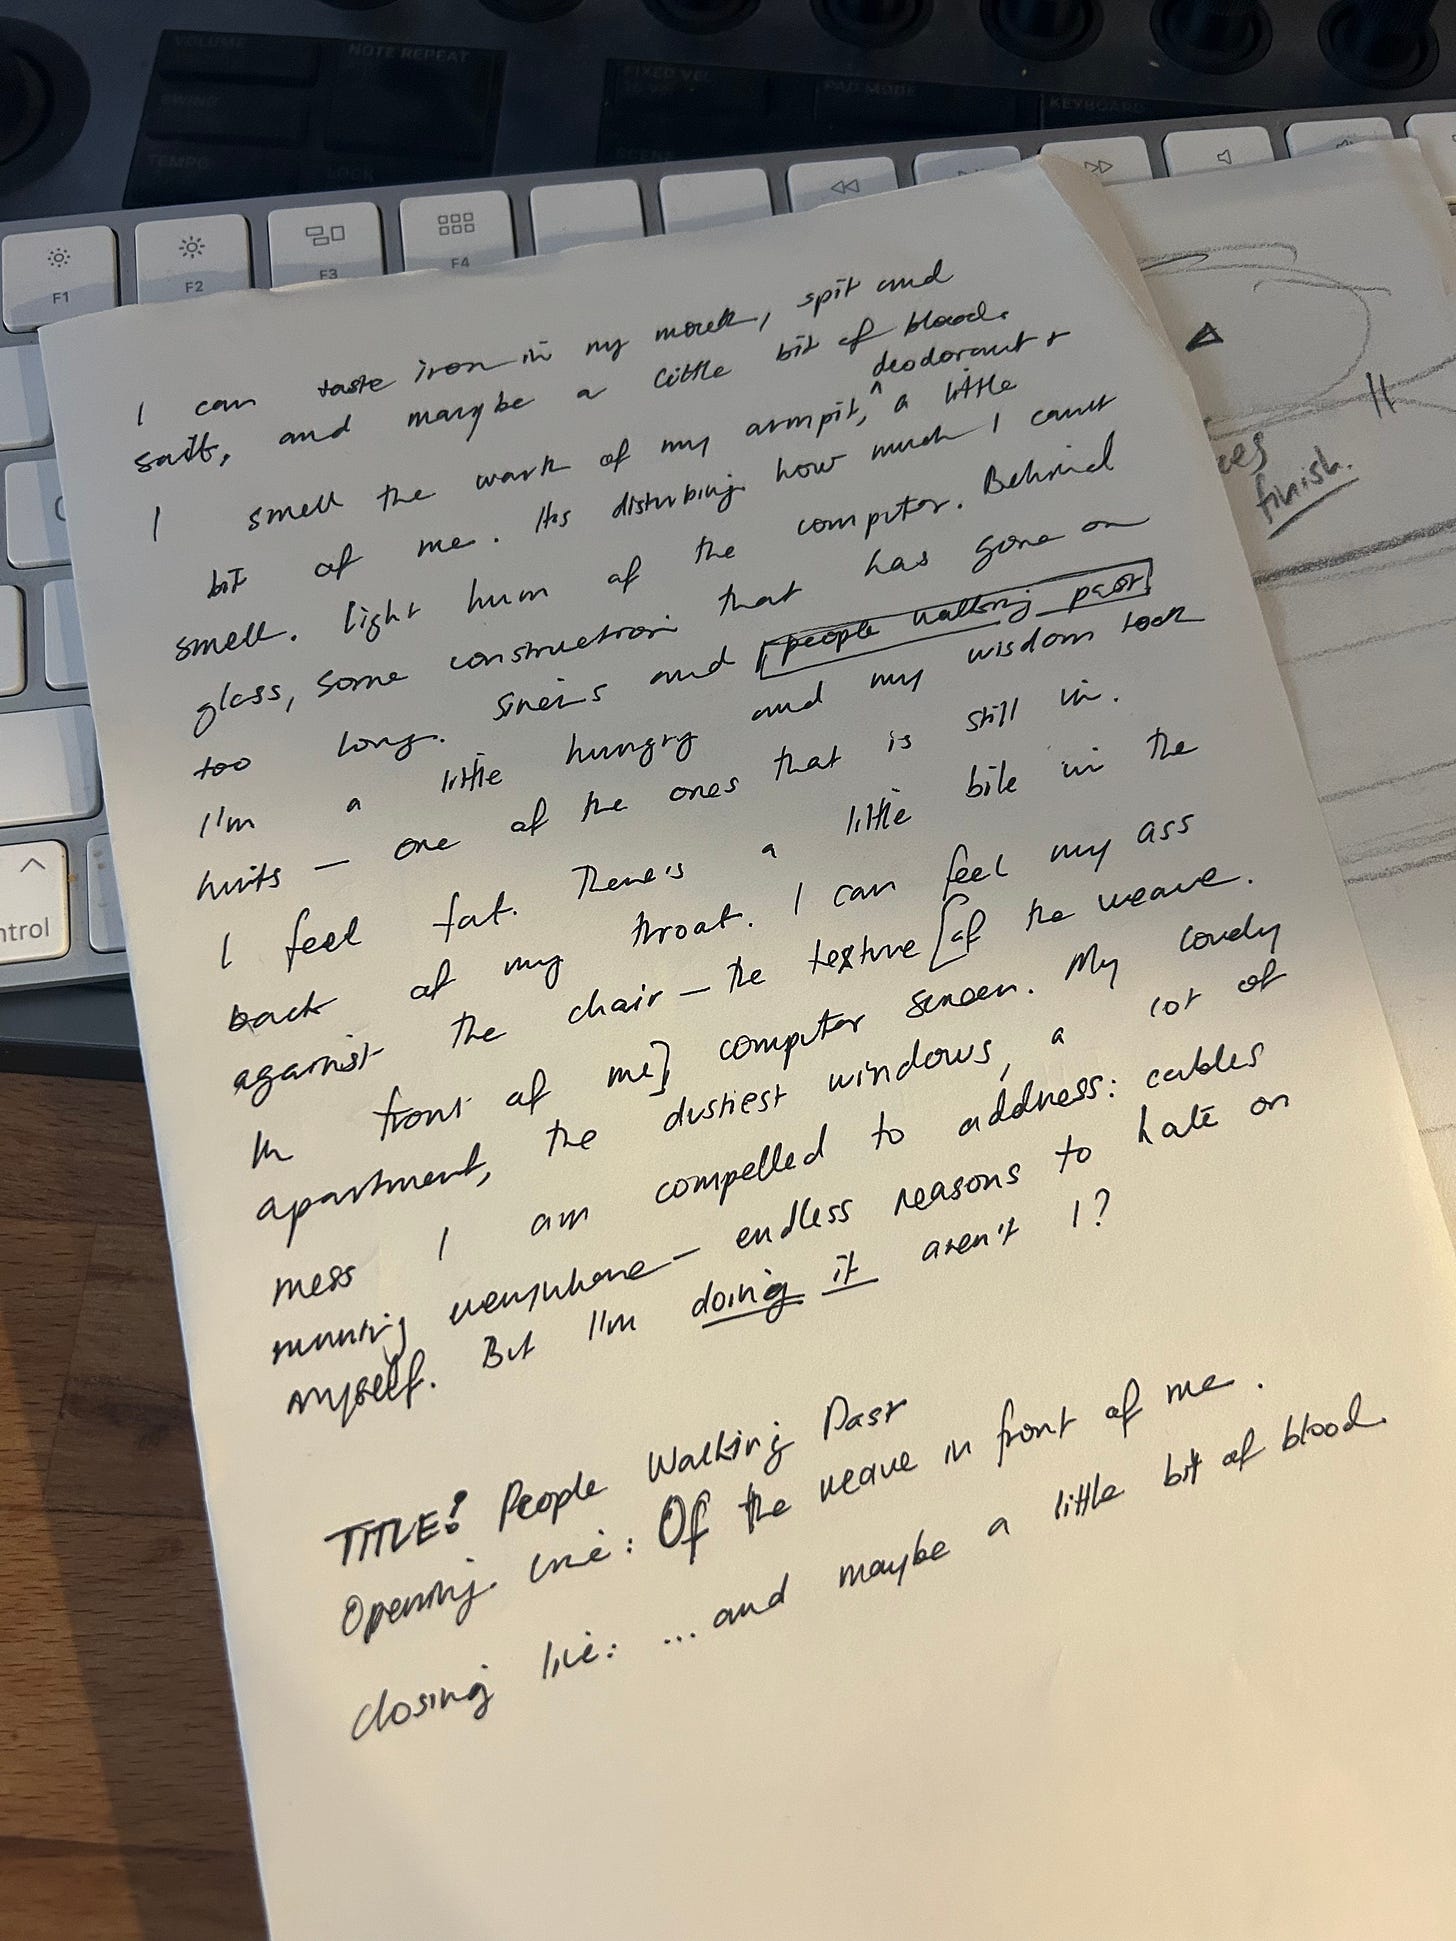 VOLUME
NOTE REPEAT
SWING
TEMPO
LOCK
FIXED VEL
PAD MODE
KEYBOARD
SCENE
F1
F2
F3
F4
ntrol
I can taste iron in my mouth, spit and
salt, and maybe a little bit of blood.
I smell the work of my armpit, ^ deodorant + a little
bit of me. Its disturbing how much I can't
smell. light hum of the computer. Behind
glass, some construction that has gone on
too long. Sirens and [people walking past]
I'm a little hungry and my wisdom tooth
hurts — one of the ones that is still in.
I feel fat. There's a little bile in the
back of my throat. I can feel my ass
against the chair — the texture [of the weave.
In front of me] computer screen. My lovely
apartment, the dustiest windows, a lot of
mess I am compelled to address: cables
running everywhere — endless reasons to hate on
myself. But I'm doing it aren't I?
TITLE? People Walking Past
Opening line: Of the weave in front of me.
closing line: ... and maybe a little bit of blood.
finish.